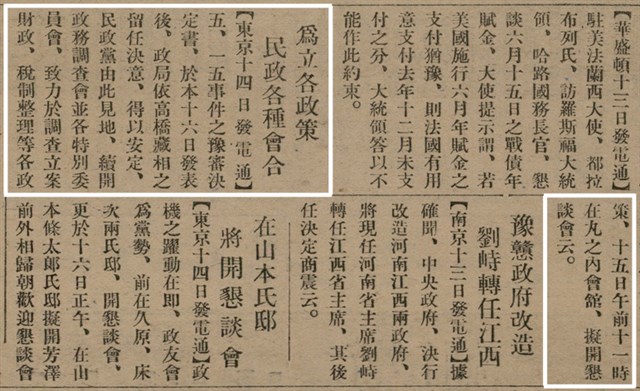 【華盛頓十三日發電通】
駐美法蘭西大使、都拉
布列氏、訪羅斯福大統
領、哈路國務長官、懇
談六月十五日之戰債年
賦金、大使提示謂、若
美國施行六月年賦金之
支付猶豫、則法國有用
意支付去年十二月未支
付之分、大統領答以不
能作此約束。
爲立各政策
民政各種會合
【東京十四日發電通】
五、一五事件之豫審決
定書、於本十六日發表
後、政局依高橋藏相之
留任決意、得以安定、
民政黨由此見地、續開
政務調查會並各特別委
員會、致力於調查立案
財政、稅制整理等各政
策、十五日午前十一時
在丸之內會館、擬開懇
談會云。
豫戇政府改造
劉峙轉任江西
【南京十三日發電通】據
確聞、中央政府、決行
改造河南江西兩政府、
將現任河南省主席劉峙
轉任江西省主席、其後
任決定商震云。
在山本氏邸
將開懇談會
【東京十四日發電通】政
機之躍動在即、政友會
爲黨勢、前在久原、床
次兩氏邸、開懇談會、
更於十六日正午、在山
本條太郎氏邸擬開芳澤
前外相歸朝歡迎懇談會